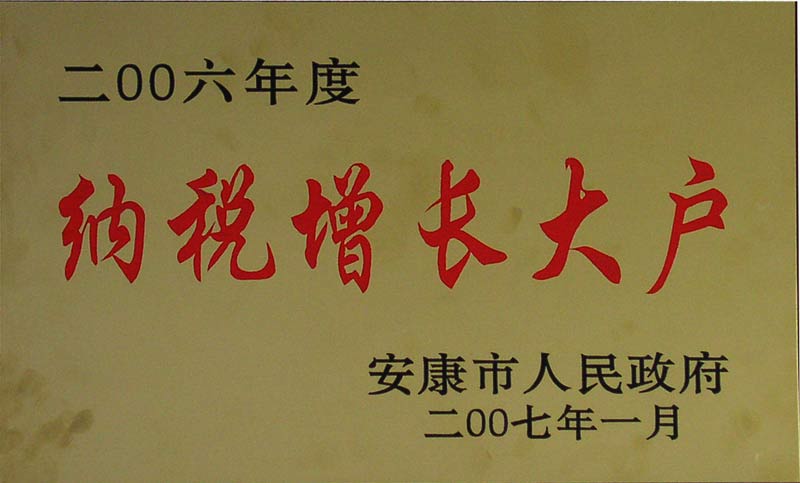 二00六年度
纳税增长大户
安康市人民政府
二00七年一月